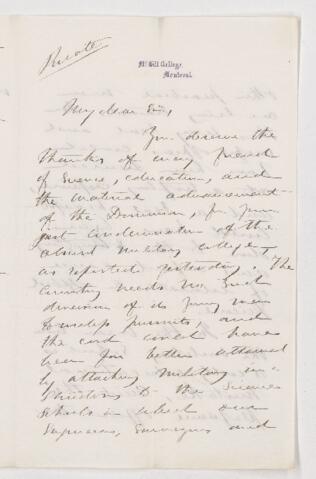 Private
McGill College,
Montreal.
My dear Sir,
You deserve the
thanks of every friend
of Science, education, and
the material advancement
of the Dominion, for your
just condemnation of the
absurd military college,
as reported yesterday. The
Country needs no such
diversion of its young men
to useless pursuits and
the end could have
been far better attained
by attaching military in-
structions to the Science
Schools in which our
Engineers, Surveyors and